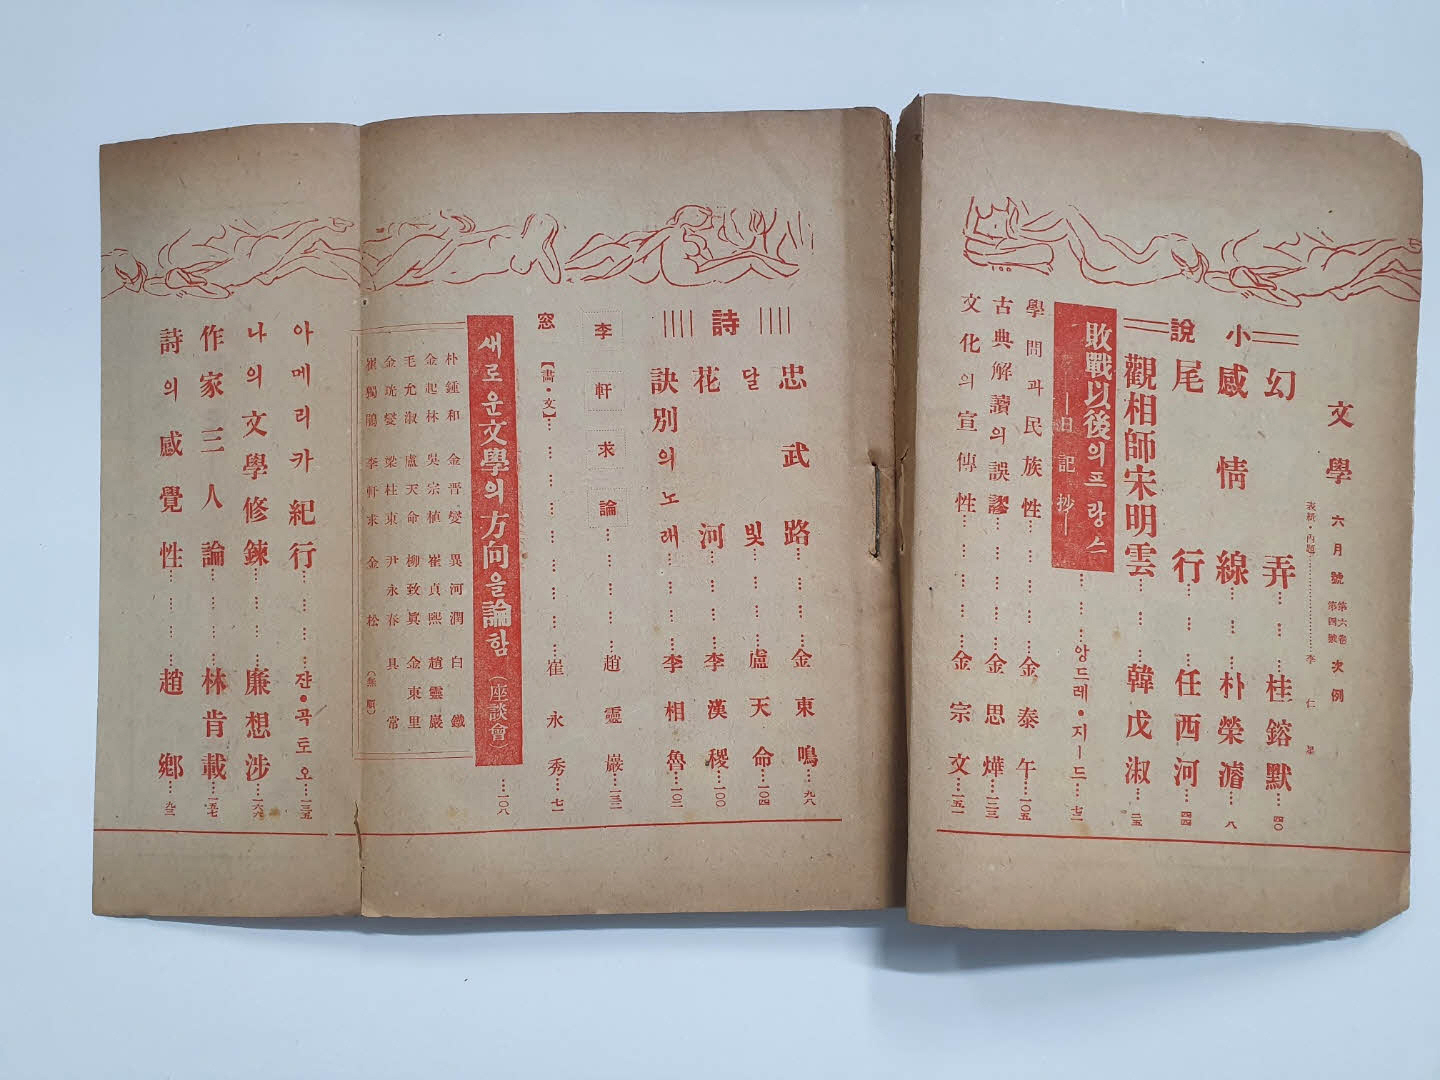 文學 六月號 第六卷 第四號 次例
表紙・內題……李仁星
小說
幻弄……桂鎔默…四〇
感情線……朴榮濬…八
尾行……任西河…四四
觀相師宋明雲……韓戊淑…二五
敗戰以後의프랑스―日記抄―……앙드레・지―드…七二
學問과民族性……金泰午…一〇五
古典解讀의誤謬……金思燁…一二三
文化의宣傳性……金宗文…一五一
詩
忠武路……金東鳴…九八
달빛……盧天命…一〇四
花河……李漢稷…一〇〇
訣別의노래……李相魯…一〇二
李軒求論……趙靈巖…一三二
窓【畵・文】……崔永秀…七一
새로운文學의方向을論함(座談會)…一〇八
朴鍾和 金晋燮 異河潤 白鐵
金起林 吳宗植 崔貞熙 趙靈巖
毛允淑 盧天命 柳致眞 金東里
金珖燮 梁柱東 尹永春 具常
崔獨鵑 李軒求 金松 (無順)
아메리카紀行……쟌・콕토오…一三五
나의文學修鍊……廉想涉…一六六
作家三人論……林肯載…一五七
詩의感覺性……趙鄕…九三